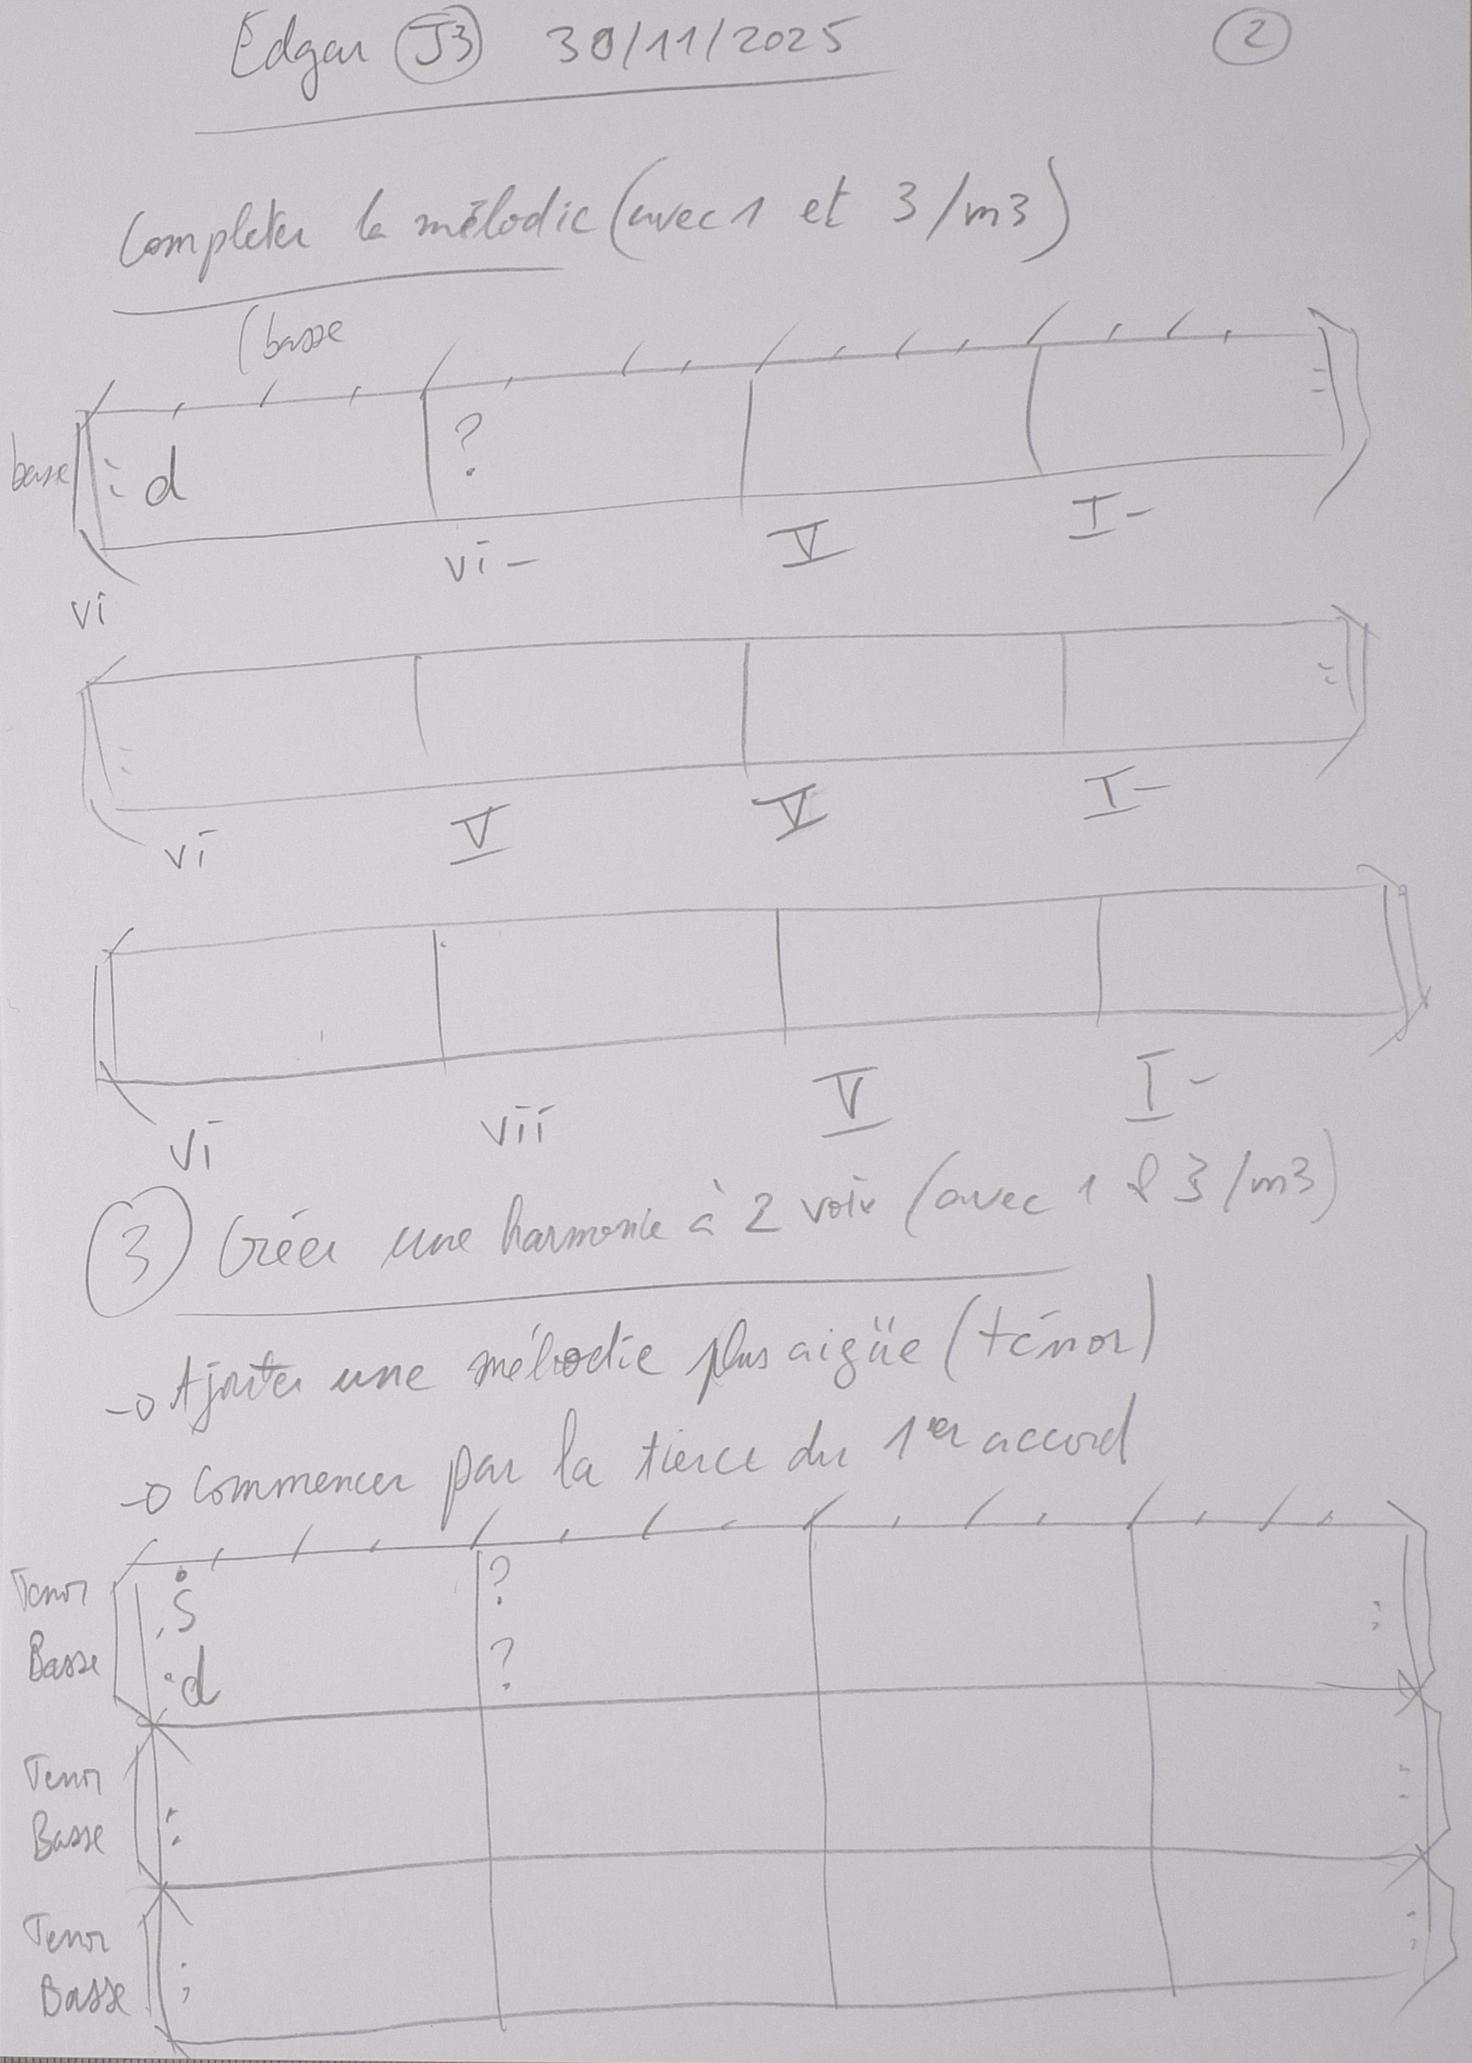 Edgar J3 30/11/2025 2
Completer la mélodie (avec 1 et 3/m3)
(basse
basse : d ? :
vi vi- V I-
: :
vi V V I-
vi vii V I-
3 Créer une harmonie à 2 voix (avec 1 & 3/m3)
→ Ajouter une mélodie plus aigüe (ténor)
→ commencer par la tierce du 1er accord
Tenor s ?
Basse d ? :
Tenor
Basse : :
Tenor
Basse : :